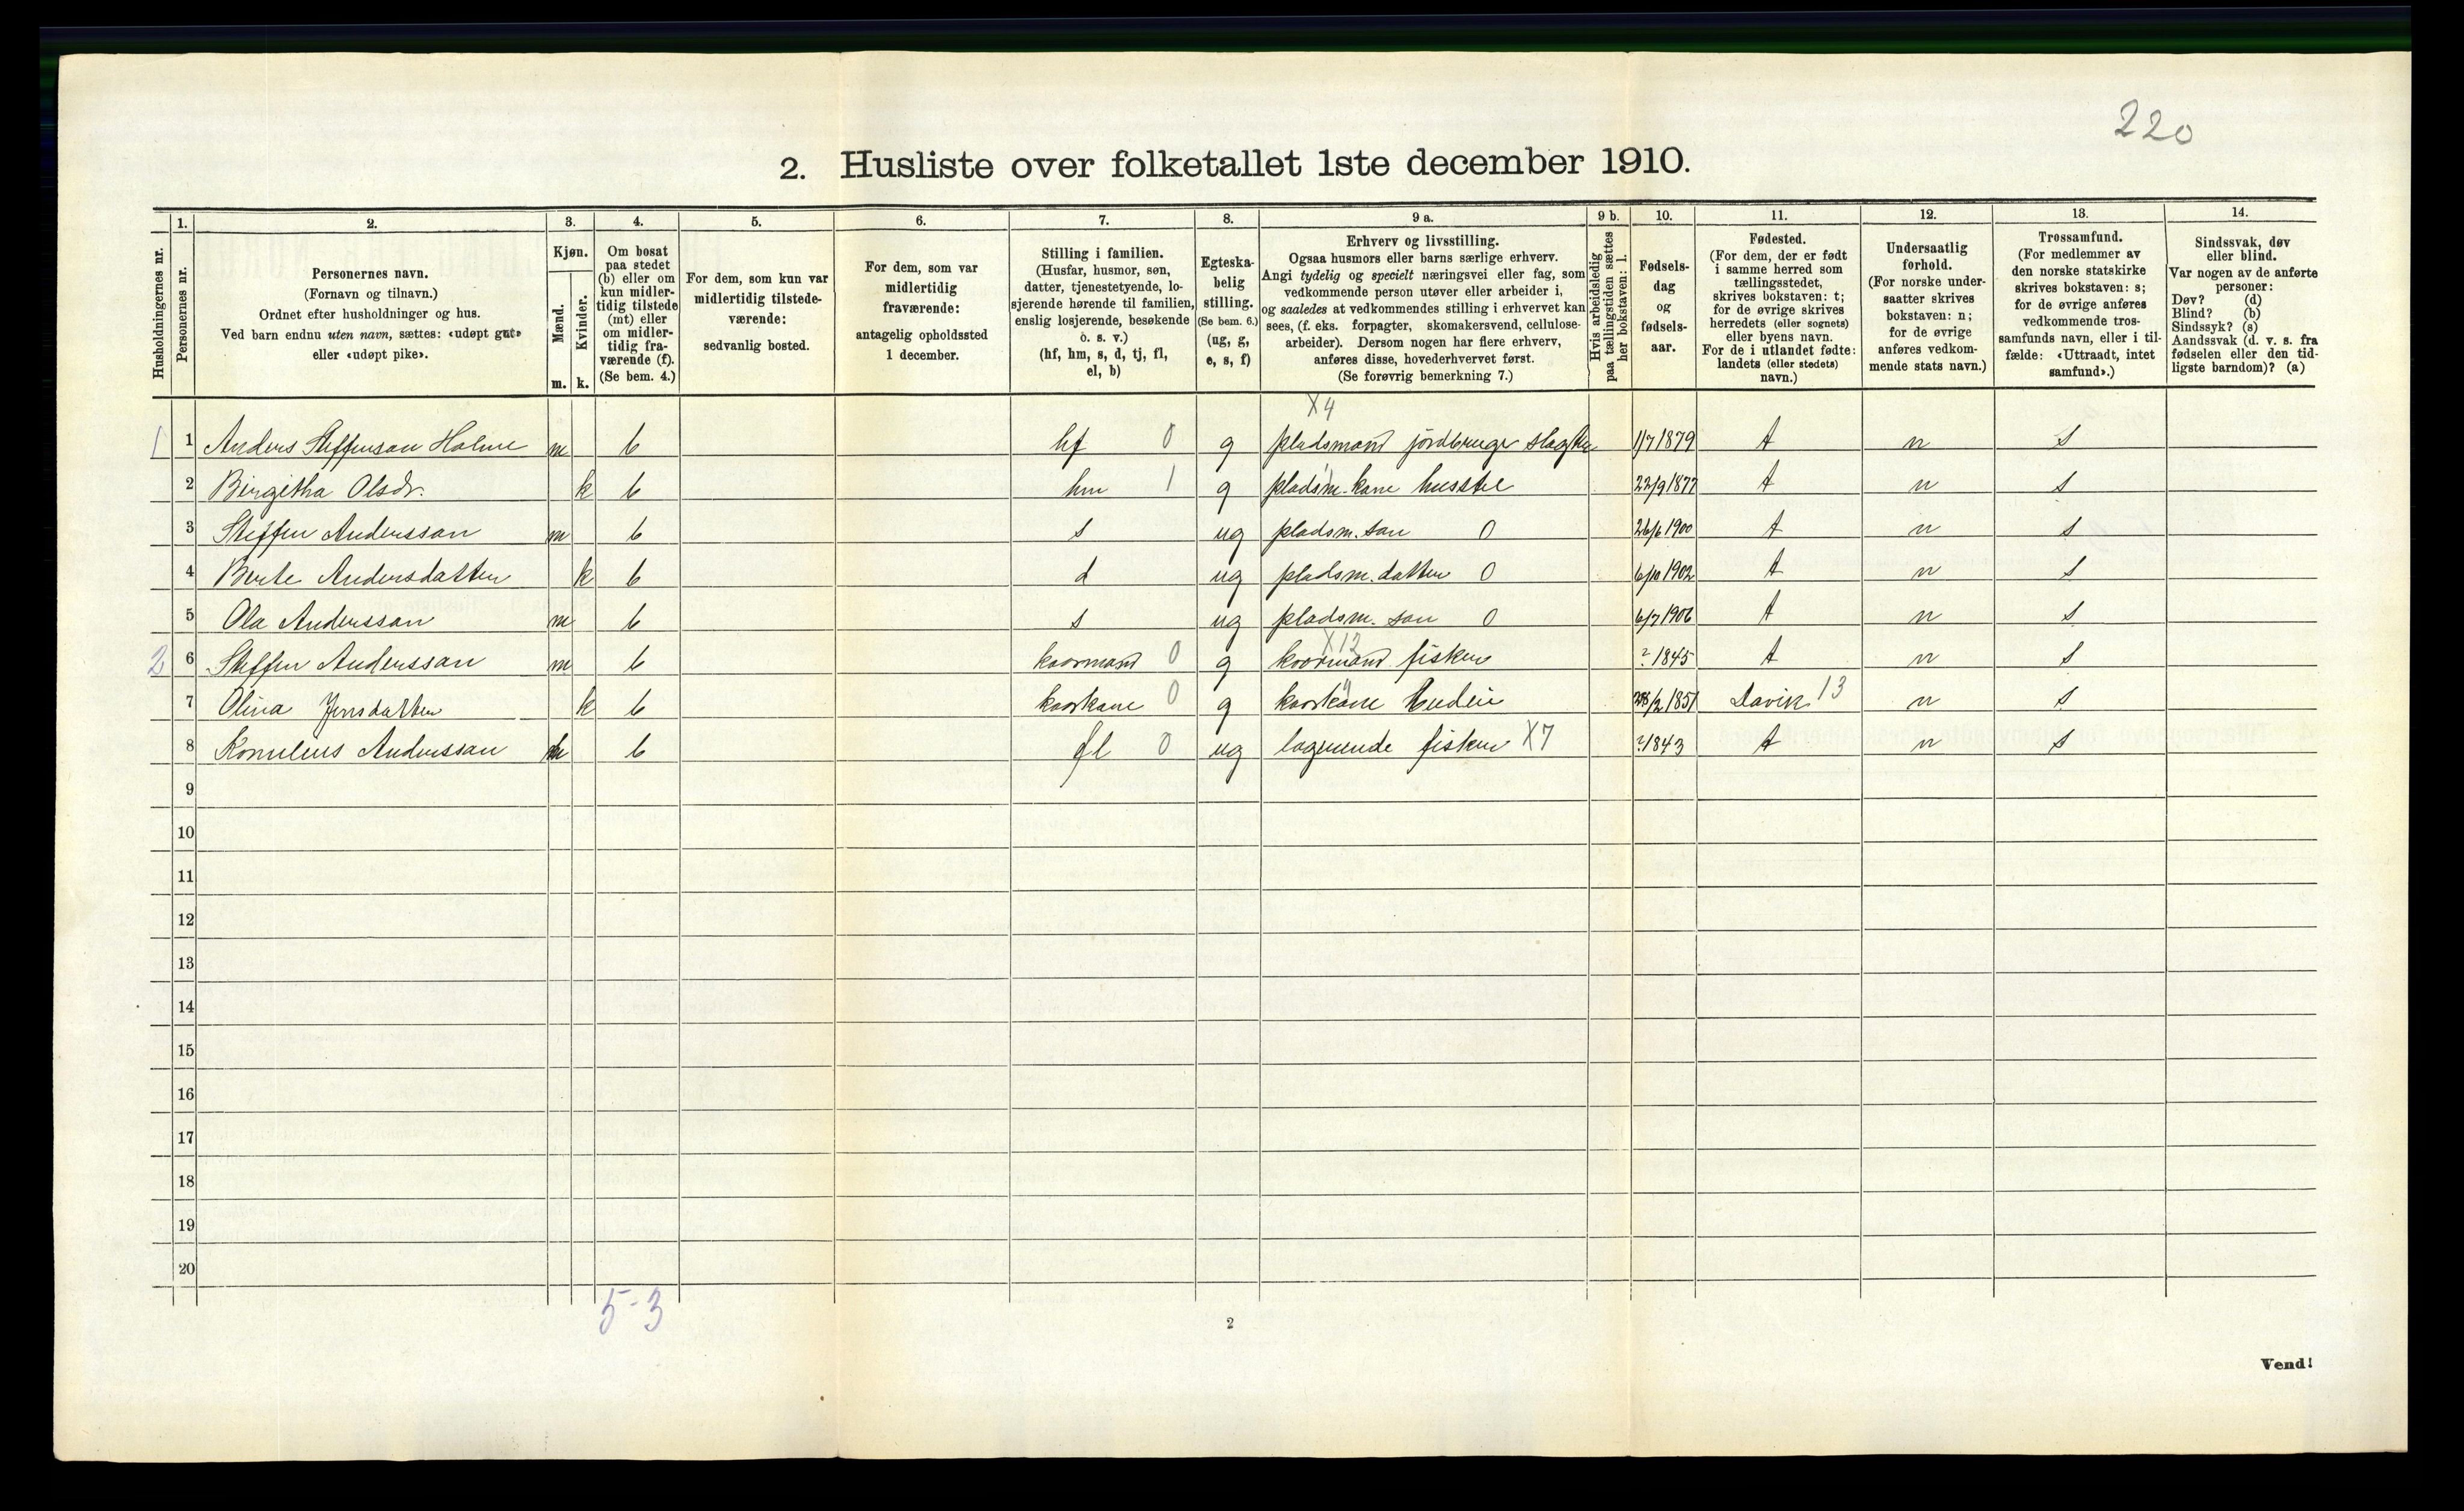 220
2. Husliste over folketallet 1ste december 1910.
Husholdningernes nr.
1.
Personernes nr.
2.
Personernes navn.
(Fornavn og tilnavn.)
Ordnet efter husholdninger og hus.
Ved barn endnu uten navn, sættes: «udøpt gut»
eller «udøpt pike».
3.
Kjøn.
Mænd.
Kvinder.
m. k.
4.
Om bosat
paa stedet
(b) eller om
kun midler-
tidig tilstede
(mt) eller
om midler-
tidig fra-
værende (f).
(Se bem. 4.)
5.
For dem, som kun var
midlertidig tilstede-
værende:
sedvanlig bosted.
6.
For dem, som var
midlertidig
fraværende:
antagelig opholdssted
1 december.
7.
Stilling i familien.
(Husfar, husmor, søn,
datter, tjenestetyende, lo-
sjerende hørende til familien,
enslig losjerende, besøkende
o. s. v.)
(hf, hm, s, d, tj, fl,
el, b)
8.
Egteska-
belig
stilling.
(Se bem. 6.)
(ug, g,
e, s, f)
9 a.
Erhverv og livsstilling.
Ogsaa husmors eller barns særlige erhverv.
Angi tydelig og specielt næringsvei eller fag, som
vedkommende person utøver eller arbeider i,
og saaledes at vedkommendes stilling i erhvervet kan
sees, (f. eks. forpagter, skomakersvend, cellulose-
arbeider). Dersom nogen har flere erhverv,
anføres disse, hovederhvervet først.
(Se forøvrig bemerkning 7.)
9 b.
Hvis arbeidsledig
paa tællingstiden sættes
her bokstaven: l.
10.
Fødsels-
dag
og
fødsels-
aar.
11.
Fødested.
(For dem, der er født
i samme herred som
tællingsstedet,
skrives bokstaven: t;
for de øvrige skrives
herredets (eller sognets)
eller byens navn.
For de i utlandet fødte:
landets (eller stedets)
navn.)
12.
Undersaatlig
forhold.
(For norske under-
saatter skrives
bokstaven: n;
for de øvrige
anføres vedkom-
mende stats navn.)
13.
Trossamfund.
(For medlemmer av
den norske statskirke
skrives bokstaven: s;
for de øvrige anføres
vedkommende tros-
samfunds navn, eller i til-
fælde: «Uttraadt, intet
samfund».)
14.
Sindssvak, døv
eller blind.
Var nogen av de anførte
personer:
Døv? (d)
Blind? (b)
Sindssyk? (s)
Aandssvak (d. v. s. fra
fødselen eller den tid-
ligste barndom)? (a)
X4
1 1 Anders Steffensan Holme m b hf 0 g pladsmand jordbruger 1/7 1879 t n s
2 Birgitha Olsdr. k b hm 1 g pladsm. kone husstel 22/9 1877 t n s
3 Steffen Anderssan m b s ug pladsm. san 0 26/6 1900 t n s
4 Berte Andersdatter k b d ug pladsm. datter 0 6/10 1902 t n s
5 Ola Anderssan m b s ug pladsm. san 0 6/7 1906 t n s
X12
2 6 Steffen Anderssan m b kaarmand 0 g kaarmand fisker ? 1845 t n s
7 Olina Jensdatter k b kaarkane 0 g kaarkane 28/2 1851 Davik 13 n s
8 Kornelius Anderssan m b fl 0 ug fisker X7 ? 1843 t n s
9
10
11
12
13
14
15
16
17
18
19
20
5-3
2
Vend!